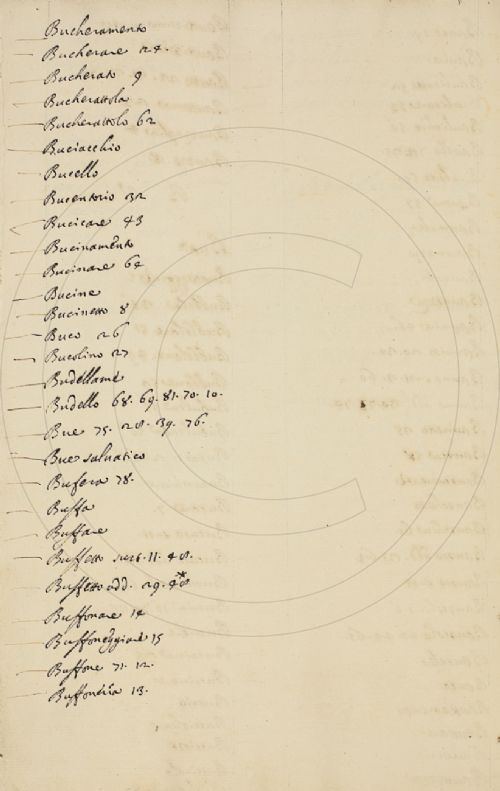 Bucheramento
Bucherare 24.
Bucherato 9
Bucherattola
Bucherattolo 62
Buciacchio
Bucello
Bucentorio 32
Bucicare 43
Bucinamento
Bucinare 64
Bucine
Bucinetto 8
Buco 26
Bucolino 27
Budellame
Budello 68. 69. 81. 70. 10.
Bue 75. 28. 39. 76.
Bue saluatico
Bufera 78.
Buffa
Buffare
Buffetto sust. 11. 48.
Buffetto add. 29. 48
Buffonare 14
Buffoneggiare 15
Buffone 71. 12.
Buffoneria 13.